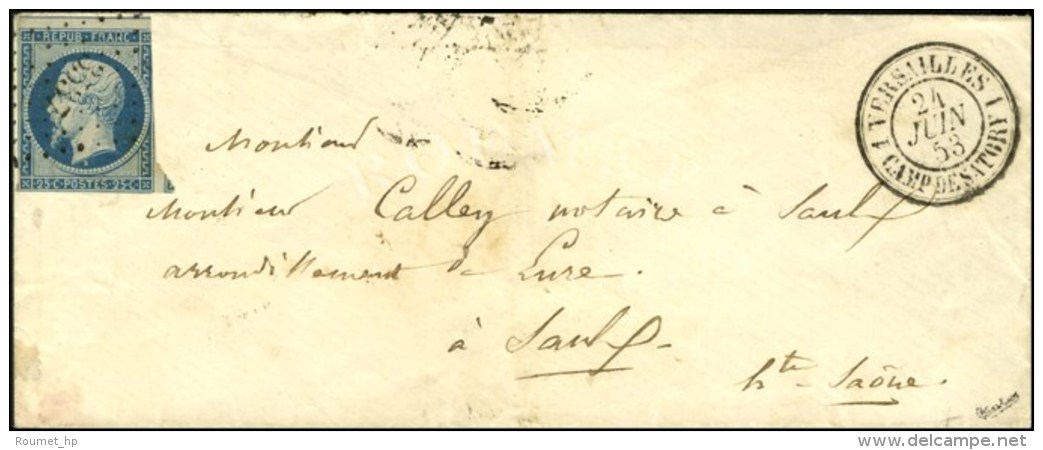 REPUB. FRANC.
25·C·POSTES·25·C
VERSAILLES
24
JUIN
53
CAMP DE SATORY
Monsieur
Monsieur Calley notaire à Saulx
arrondissement de Lure.
à Saulx
hte Saône.
Roumet_hp
www.delcampe.net